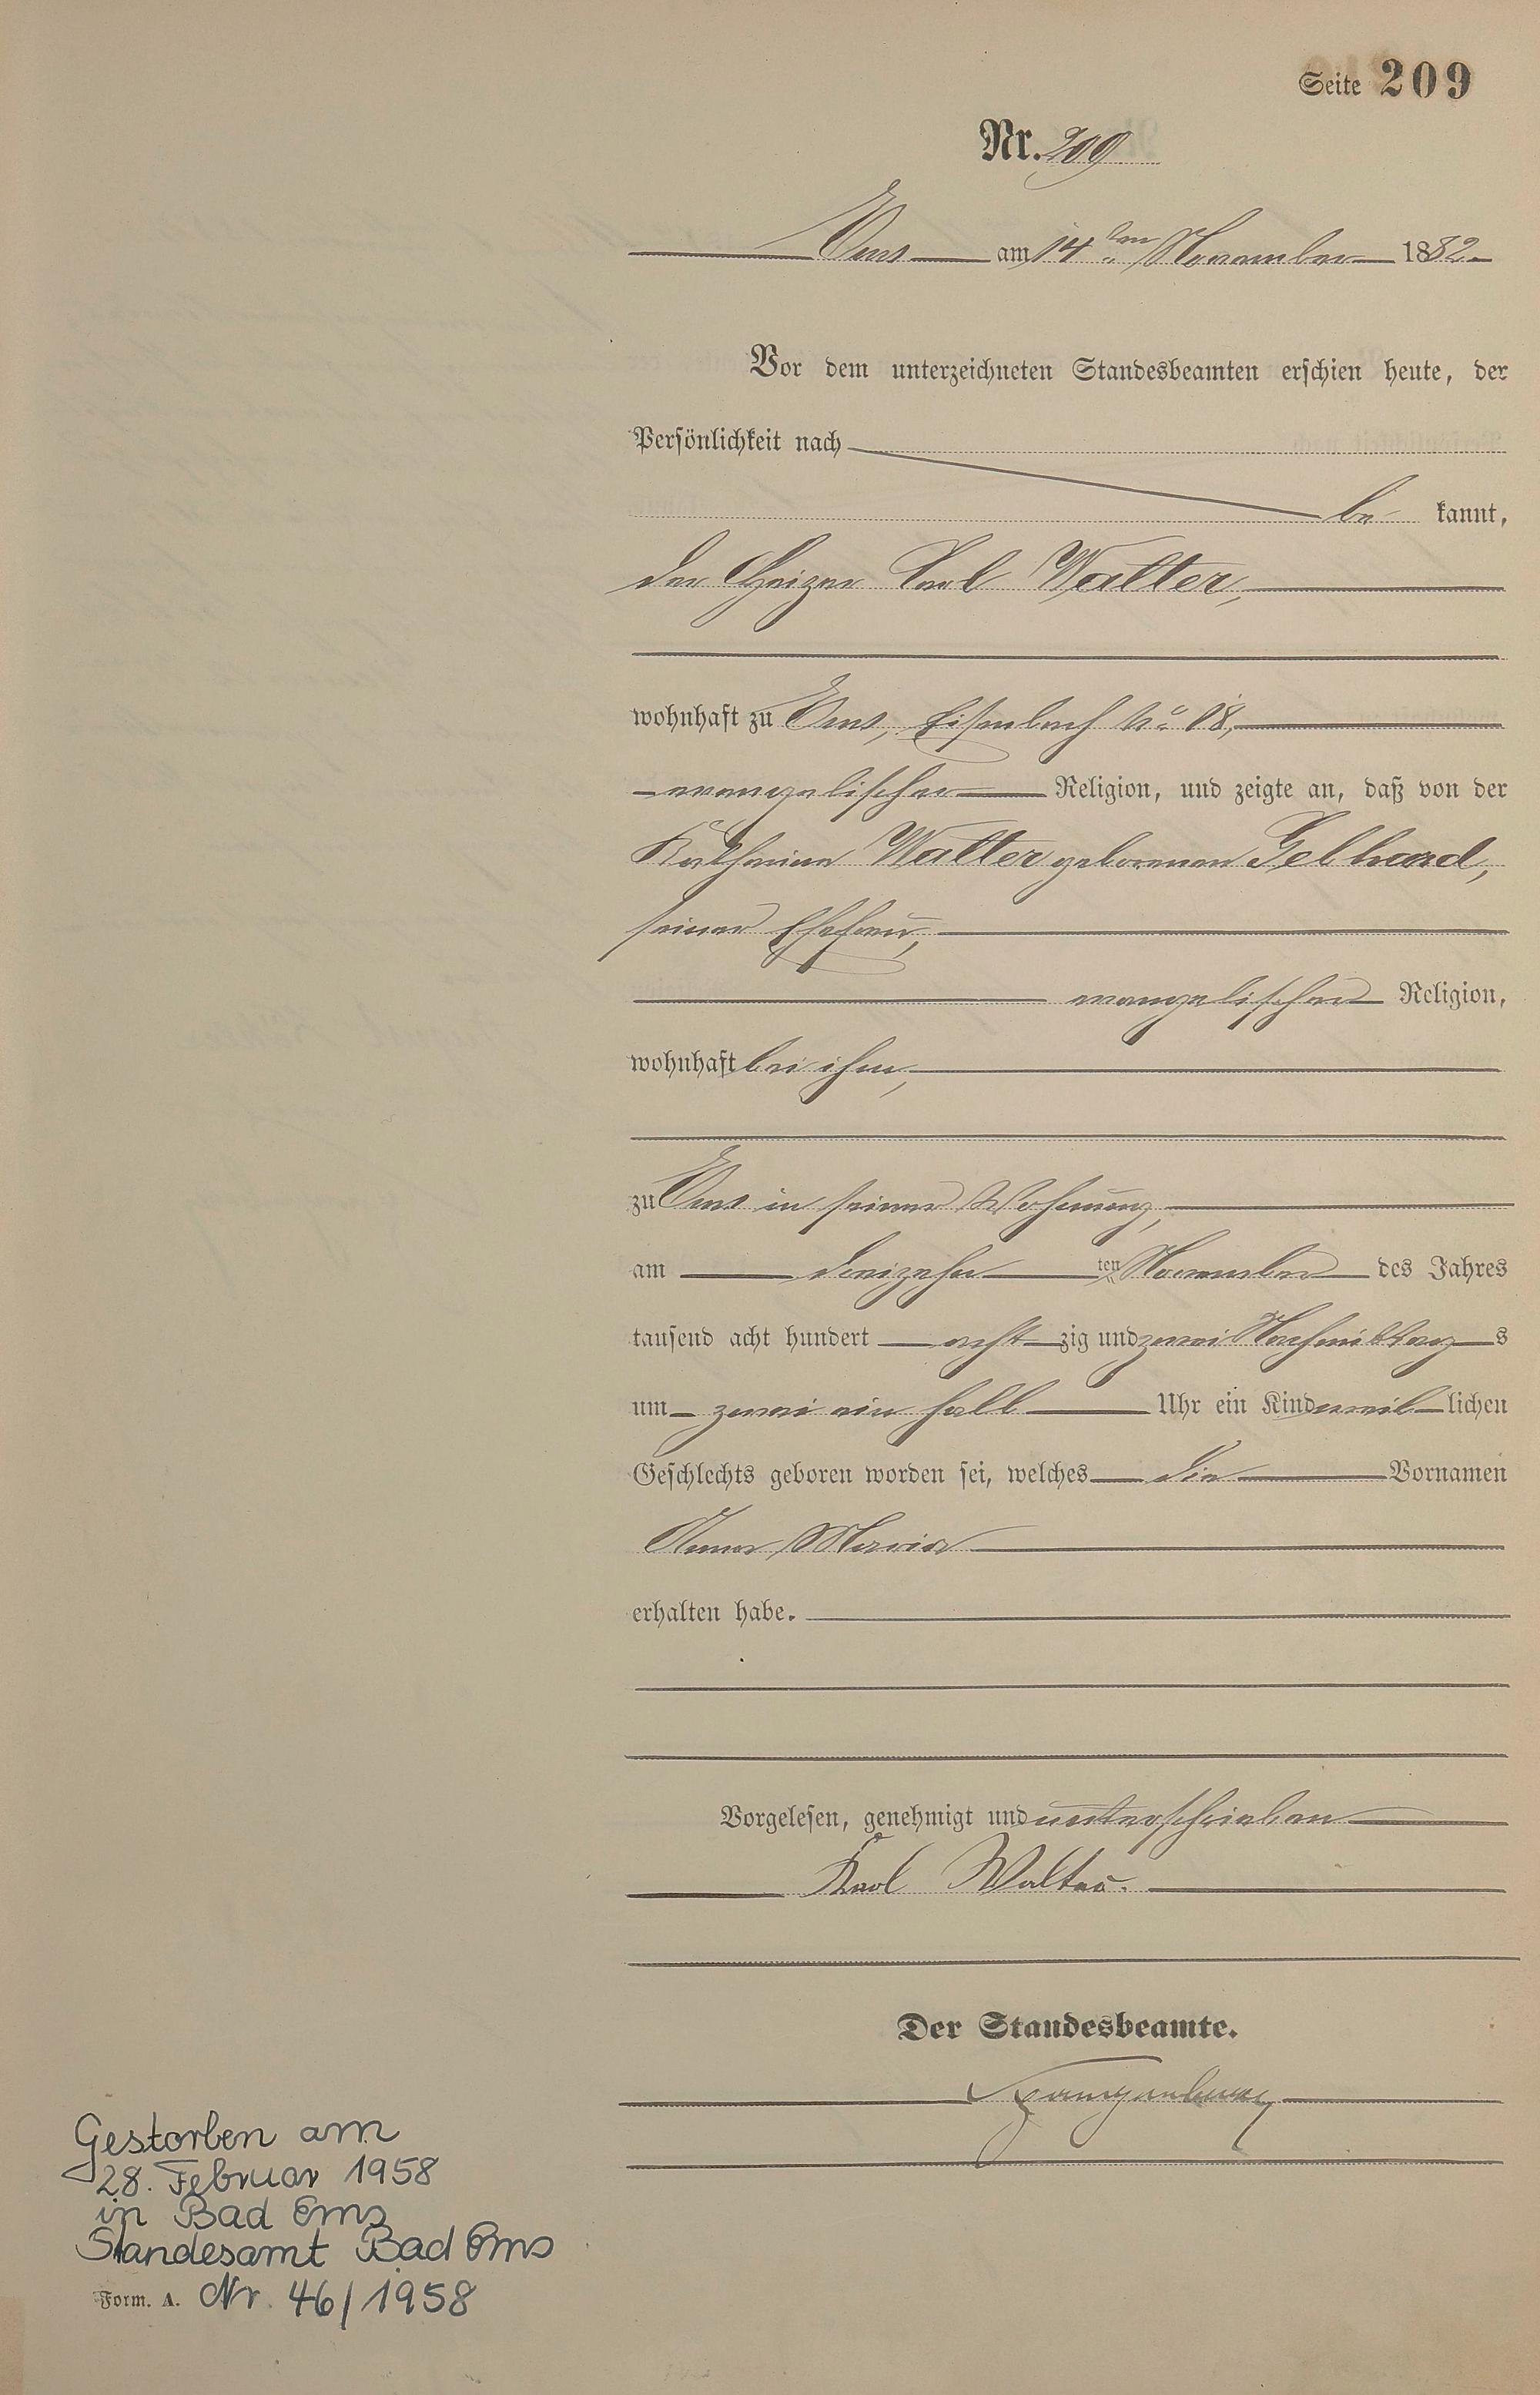 Seite 209
Nr. 209
Ems am 14ten November 1882
Vor dem unterzeichneten Standesbeamten erschien heute, der
Persönlichkeit nach
be kannt,
der Heizer Carl Walter,
wohnhaft zu Ems, Eisenbach No 18,
evangelischer Religion, und zeigte an, daß von der
Katharina Walter geborenen Gebhard,
seiner Ehefrau,
evangelischer Religion,
wohnhaft bei ihm,
zu Ems in seiner Wohnung,
am dreizehn ten November des Jahres
tausend acht hundert acht zig und zwei Nachmittag s
um zwei ein halb Uhr ein Kind weib lichen
Geschlechts geboren worden sei, welches die Vornamen
Anna Maria
erhalten habe.
Vorgelesen, genehmigt und unterschrieben
Karl Walter.
Der Standesbeamte.
Gestorben am
28. Februar 1958
in Bad Ems
Standesamt Bad Ems
Form. A. Nr. 46/1958